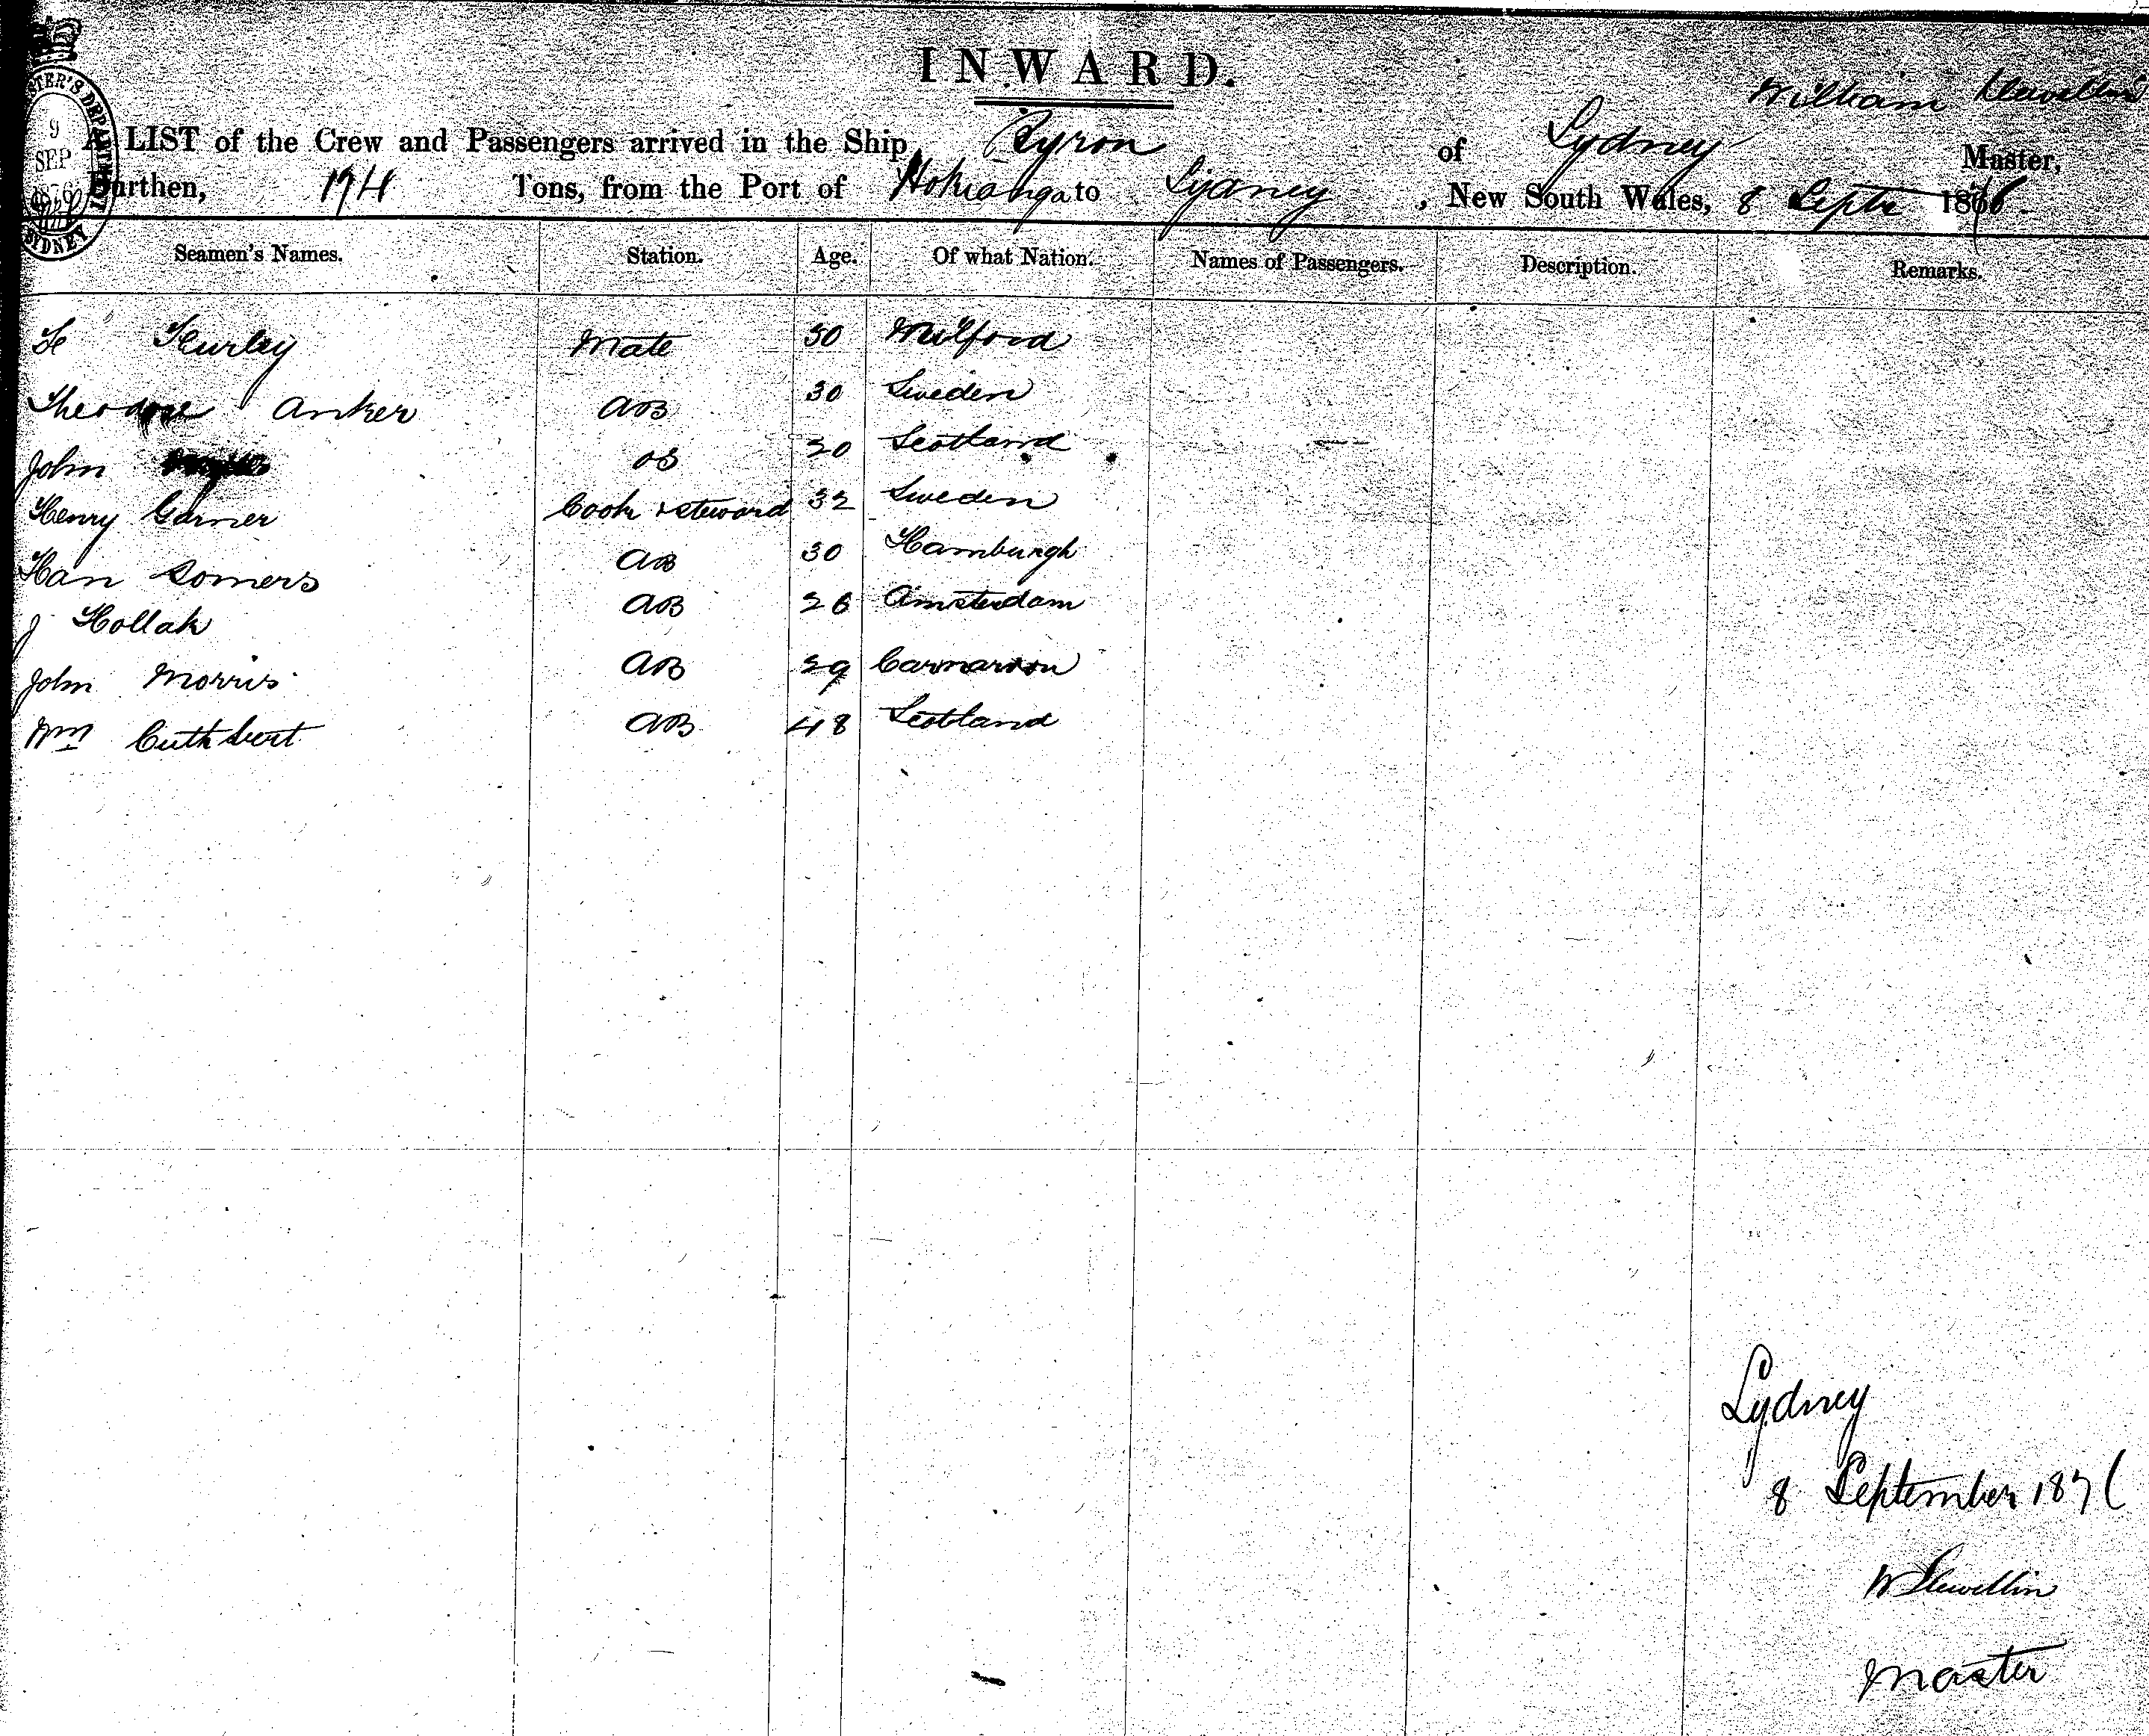 INWARD.
William Llewellin
A LIST of the Crew and Passengers arrived in the Ship Byron of Sydney Master,
Burthen, 194 Tons, from the Port of Hokianga to Sydney, New South Wales, 8 Septr 1876
9
SEP
1876
SYDNEY
Seamen's Names. Station. Age. Of what Nation. Names of Passengers. Description. Remarks.
Mate 30 Milford
Theodore Anker AB 30 Sweden
John OS 20 Scotland
Henry Garner Cook & Steward 32 Sweden
Han Somers AB 30 Hamburgh
J Hollak AB 26 Amsterdam
John Morris AB 29 Carnarvon
Wm Cuthbert AB 48 Scotland
Sydney
8 September 1876
W Llewellin
Master